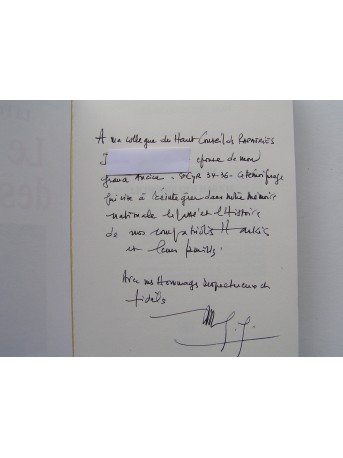 A ma collègue du Haut Conseil des RAPATRIÉS
J épouse de mon
grand Ancien - CYR 34-36 - ce témoignage
qui vise à réintégrer dans notre mémoire
nationale le passé et l'Histoire
de nos compatriotes Harkis
et leurs familles.
Avec mes Hommages respectueux et
fidèles